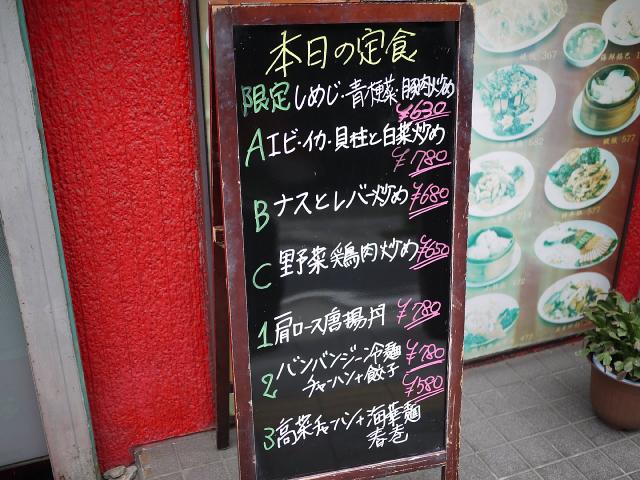 本日の定食
限定 しめじ・青梗菜・豚肉炒め
¥630
A エビ・イカ・貝柱と白菜炒め
¥780
B ナスとレバー炒め ¥680
C 野菜鶏肉炒め ¥650
1 肩ロース唐揚丹 ¥780
2 バンバンジー冷麺 ¥780
チャーハン+餃子 ¥580
3 高菜チャーハン+海華麺
春巻
367
577